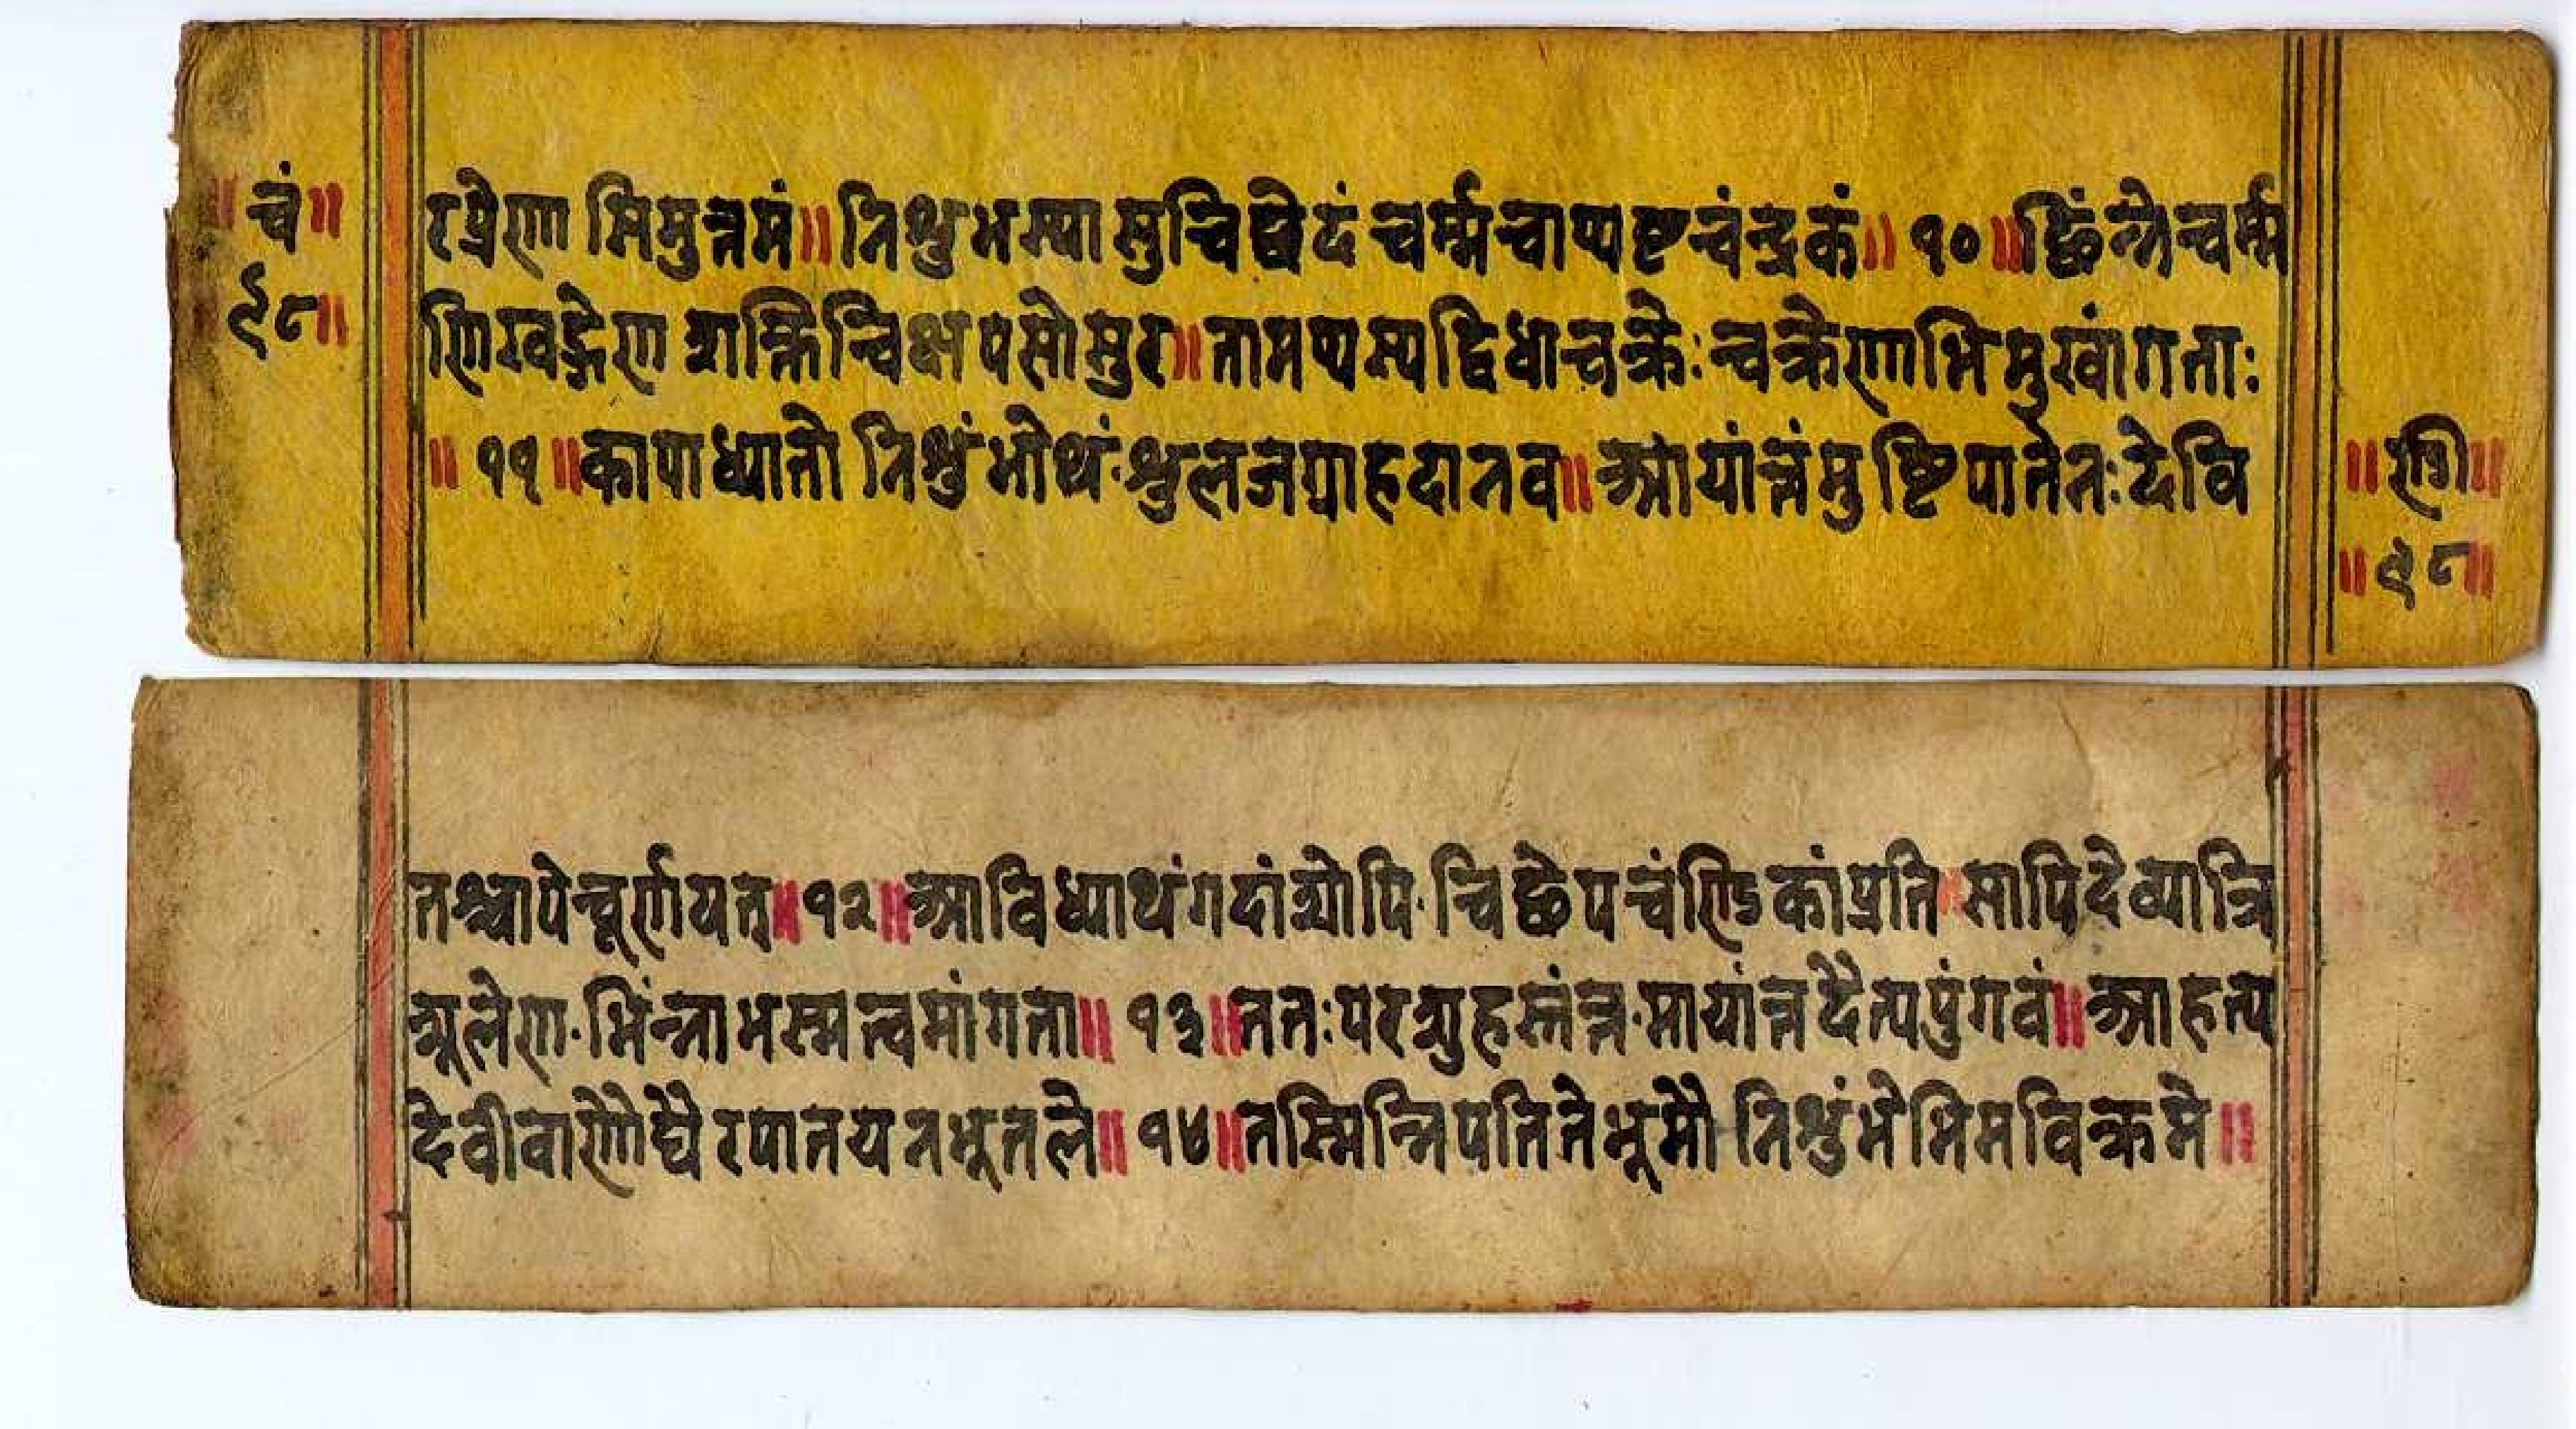 ॥ चं॥
९८॥
रप्रेणासिमुत्तमं॥ निशुभस्यासुचिछेदं चर्म्मचाप्यष्टचंन्द्रकं॥ १०॥ छिंन्नेचर्म्म
णिखड्गेण शक्तिचिक्षपसोसुर॥ तामप्यस्यद्विधाचक्रेः चक्रेणाभिमुखांगताः
॥ ११॥ कोपाध्मातो निशुंभोथं शुलजग्राहदानव॥ आयांत्तंमुष्टिपातेनः देवि
॥ ण्डी॥
॥ ९८॥
तश्चापेचूर्णयत्॥ १२॥ आविध्याथंगदांशोपि चिछेपचंण्डिकांप्रति सापिदेव्यात्रि
शूलेण भिंन्नाभस्मत्वमांगता॥ १३॥ ततःपरशुहस्तंत्त मायांत्तदैत्यपुंगवं॥ आहत्य
देवीवाणौघै रपातयतभूतले॥ १४॥ तस्मिन्निपतितेभूमौ निशुंभेभिमविक्रमे॥